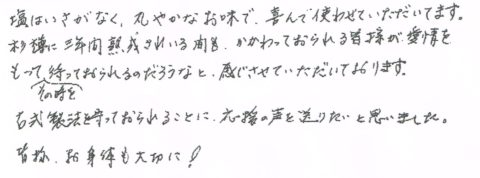 塩はいさがなく、丸やかなお味で、喜んで使わせていただいてます。
杉樽に三年間熟成されいる間も、かかわっておられる皆様が愛情を
もって、待っておられるのだろうなと、感じさせていただいております。
その時を
古式製法を守っておられることに、応援の声を送りたいと思いました。
皆様、お身体も大切に!